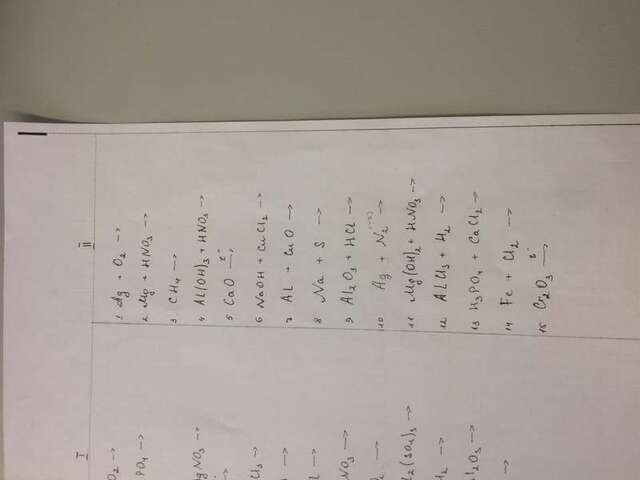 I
II
O₂ →
PO₄ →
AgNO₃ →
Cl₃ →
NO₃ →
l₂(SO₄)₃ →
H₂ →
l₂O₃ →
1 Ag + O₂ →
2 Mg + HNO₃ →
3 CH₄ →
4 AL(OH)₃ + HNO₃ →
5 CaO t° →
6 NaOH + CuCl₂ →
7 AL + CuO →
8 Na + S →
9 Al₂O₃ + HCl →
10 Ag + N₂ (-3) →
11 Mg(OH)₂ + HNO₃ →
12 ALCl₃ + H₂ →
13 H₃PO₄ + CaCl₂ →
14 Fe + Cl₂ →
15 Cr₂O₃ t° →